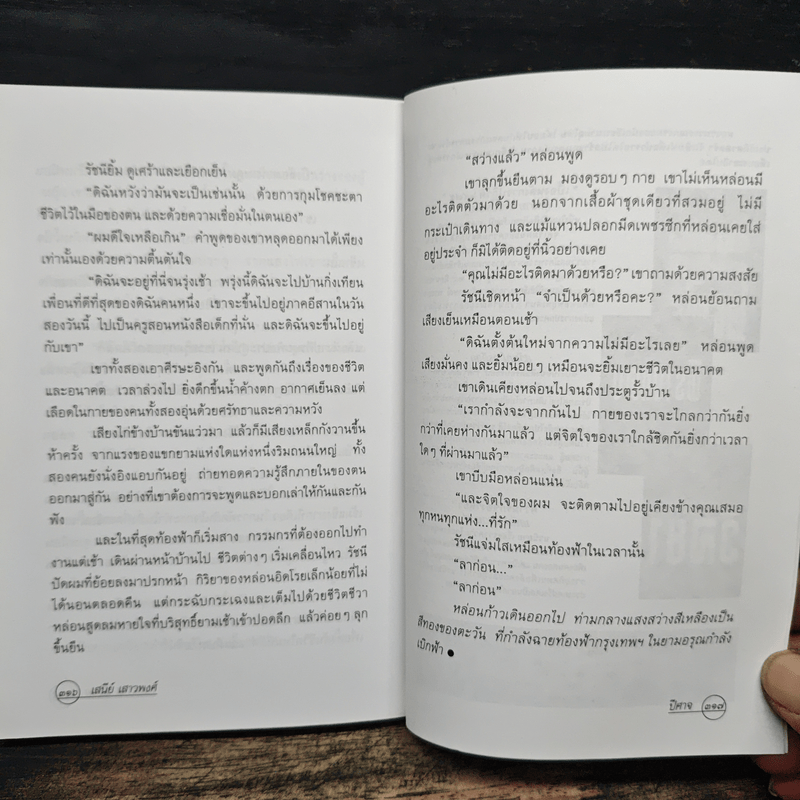 รัชนียิ้ม ดูเศร้าและเยือกเย็น
“ดิฉันหวังว่ามันจะเป็นเช่นนั้น ด้วยการกุมโชคชะตา
ชีวิตไว้ในมือของตน และด้วยความเชื่อมั่นในตนเอง”
“ผมดีใจเหลือเกิน” คำพูดของเขาหลุดออกมาได้เพียง
เท่านั้นเองด้วยความตื้นตันใจ
“ดิฉันจะอยู่ที่นี่จนรุ่งเช้า พรุ่งนี้ดิฉันจะไปบ้านกิ่งเทียน
เพื่อนที่ดีที่สุดของดิฉันคนหนึ่ง เขาจะขึ้นไปอยู่ภาคอีสานในวัน
สองวันนี้ ไปเป็นครูสอนหนังสือเด็กที่นั่น และดิฉันจะขึ้นไปอยู่
กับเขา”
เขาทั้งสองเอาศีรษะอิงกัน และพูดกันถึงเรื่องของชีวิต
และอนาคต เวลาล่วงไป ยิ่งดึกขึ้นน้ำค้างตก อากาศเย็นลง แต่
เลือดในกายของคนทั้งสองอุ่นด้วยศรัทธาและความหวัง
เสียงไก่ข้างบ้านขันแว่วมา แล้วก็มีเสียงเหล็กกังวานขึ้น
ห้าครั้ง จากแรงของแขกยามแห่งใดแห่งหนึ่งริมถนนใหญ่ ทั้ง
สองคนยังนั่งอิงแอบกันอยู่ ถ่ายทอดความรู้สึกภายในของตน
ออกมาสู่กัน อย่างที่เขาต้องการจะพูดและบอกเล่าให้กันและกัน
ฟัง
และในที่สุดท้องฟ้าก็เริ่มสาง กรรมกรที่ต้องออกไปทำ
งานแต่เช้า เดินผ่านหน้าบ้านไป ชีวิตต่างๆ เริ่มเคลื่อนไหว รัชนี
ปัดผมที่ย้อยลงมาปรกหน้า กิริยาของหล่อนอิดโรยเล็กน้อยที่ไม่
ได้นอนตลอดคืน แต่กระฉับกระเฉงและเต็มไปด้วยชีวิตชีวา
หล่อนสูดลมหายใจที่บริสุทธิ์ยามเช้าเข้าปอดลึก แล้วค่อยๆ ลุก
ขึ้นยืน
๓๑๖ เสนีย์ เสาวพงศ์
“สว่างแล้ว” หล่อนพูด
เขาลุกขึ้นยืนตาม มองดูรอบๆ กาย เขาไม่เห็นหล่อนมี
อะไรติดตัวมาด้วย นอกจากเสื้อผ้าชุดเดียวที่สวมอยู่ ไม่มี
กระเป๋าเดินทาง และแม้แหวนปลอกมีดเพชรซีกที่หล่อนเคยใส่
อยู่ประจำ ก็มิได้ติดอยู่ที่นิ้วอย่างเคย
“คุณไม่มีอะไรติดมาด้วยหรือ?” เขาถามด้วยความสงสัย
รัชนีเชิดหน้า “จำเป็นด้วยหรือคะ?” หล่อนย้อนถาม
เสียงเย็นเหมือนตอนเช้า
“ดิฉันตั้งต้นใหม่จากความไม่มีอะไรเลย” หล่อนพูด
เสียงมั่นคง และยิ้มน้อยๆ เหมือนจะยิ้มเยาะชีวิตในอนาคต
เขาเดินเคียงหล่อนไปจนถึงประตูรั้วบ้าน
“เรากำลังจะจากกันไป กายของเราจะไกลกว่ากันยิ่ง
กว่าที่เคยห่างกันมาแล้ว แต่จิตใจของเราใกล้ชิดกันยิ่งกว่าเวลา
ใดๆ ที่ผ่านมาแล้ว”
เขาบีบมือหล่อนแน่น
“และจิตใจของผม จะติดตามไปอยู่เคียงข้างคุณเสมอ
ทุกหนทุกแห่ง...ที่รัก”
รัชนีแจ่มใสเหมือนท้องฟ้าในเวลานั้น
“ลาก่อน...”
“ลาก่อน”
หล่อนก้าวเดินออกไป ท่ามกลางแสงสว่างสีเหลืองเป็น
สีทองของตะวัน ที่กำลังฉายท้องฟ้ากรุงเทพฯ ในยามอรุณกำลัง
เบิกฟ้า ●
ปีศาจ ๓๑๗